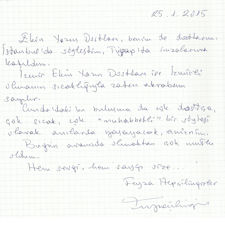 25.1.2015
Ekin Yazın Dostları, benim de dostlarım.
İstanbul'da söyleştim, Tüyap'ta imzalarına
katıldım.
İzmir Ekin Yazın Dostları ise İzmirli
olmanın sıcaklığıyla zaten akrabam
sayılır.
buluşma da çok dostça,
çok sıcak, çok "muhabbetli" bir söyleşi
olarak anılarda yaşayacak, eminim.
Bugün aranızda olmaktan çok mutlu
oldum.
Hem sevgi, hem saygı size...
Feyza Hepçilingirler